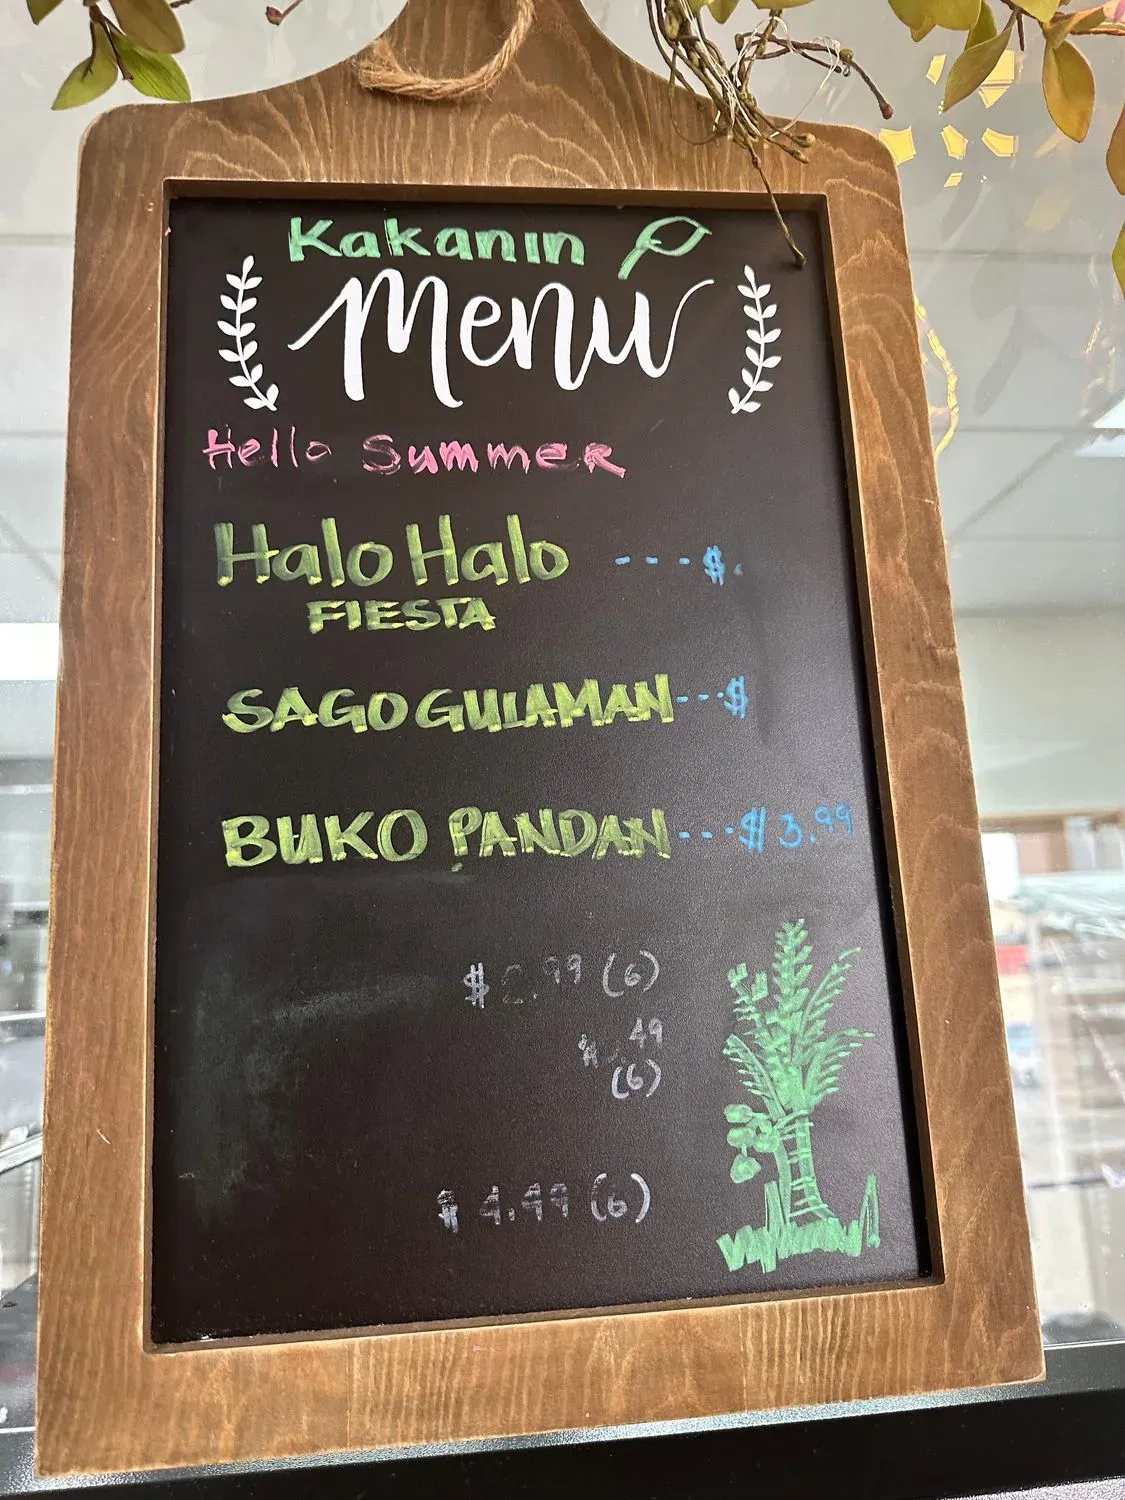 Kakanin
Menu
Hello Summer
Halo Halo ---$
FIESTA
SAGO GULAMAN---$
BUKO PANDAN---$3.99
(6)
49
(6)
$4.49 (6)